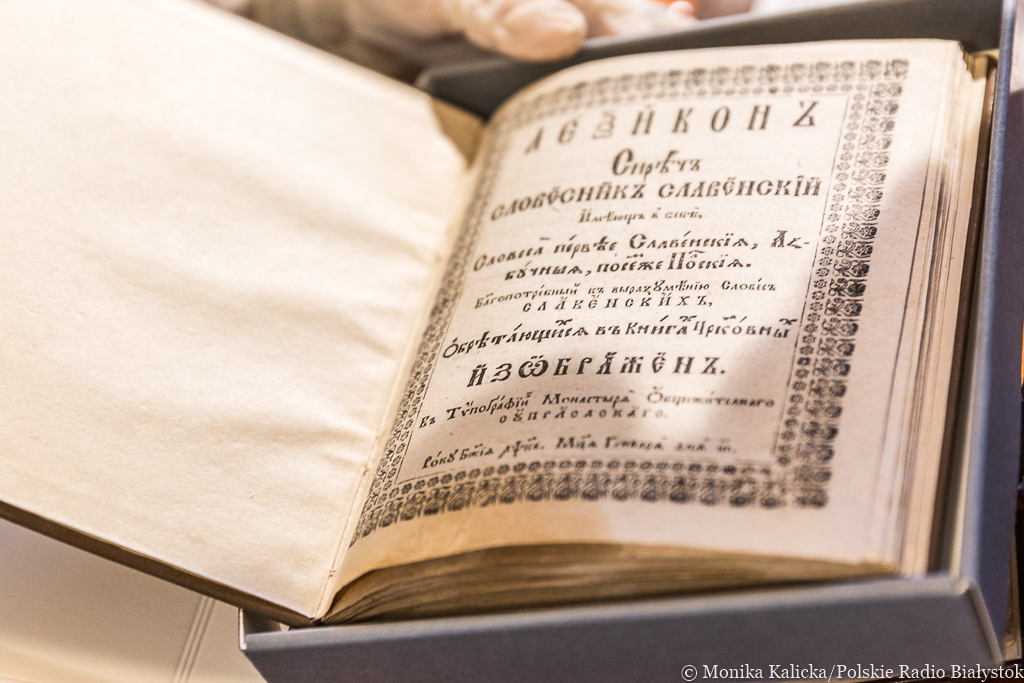 ЛЕѮЇКОНЪ
Сирѣчъ
словесникъ славенскїй
Имѣющъ в себѣ,
Словеса первѣе Славенскїѧ, Аз-
бучныѧ, посемже Полскїѧ.
Благопотребный къ выразумѣнїю Словесъ
СЛАВЕНСКИХЪ,
Обрѣтающихсѧ въ Книгахъ Церковныхъ
ИЗѠБРАЖЕНЪ.
Въ Тѵпографїи Монастырѧ Общежителнаго
Супраслскаго.
Року Божїѧ
© Monika Kalicka/Polskie Radio Białystok